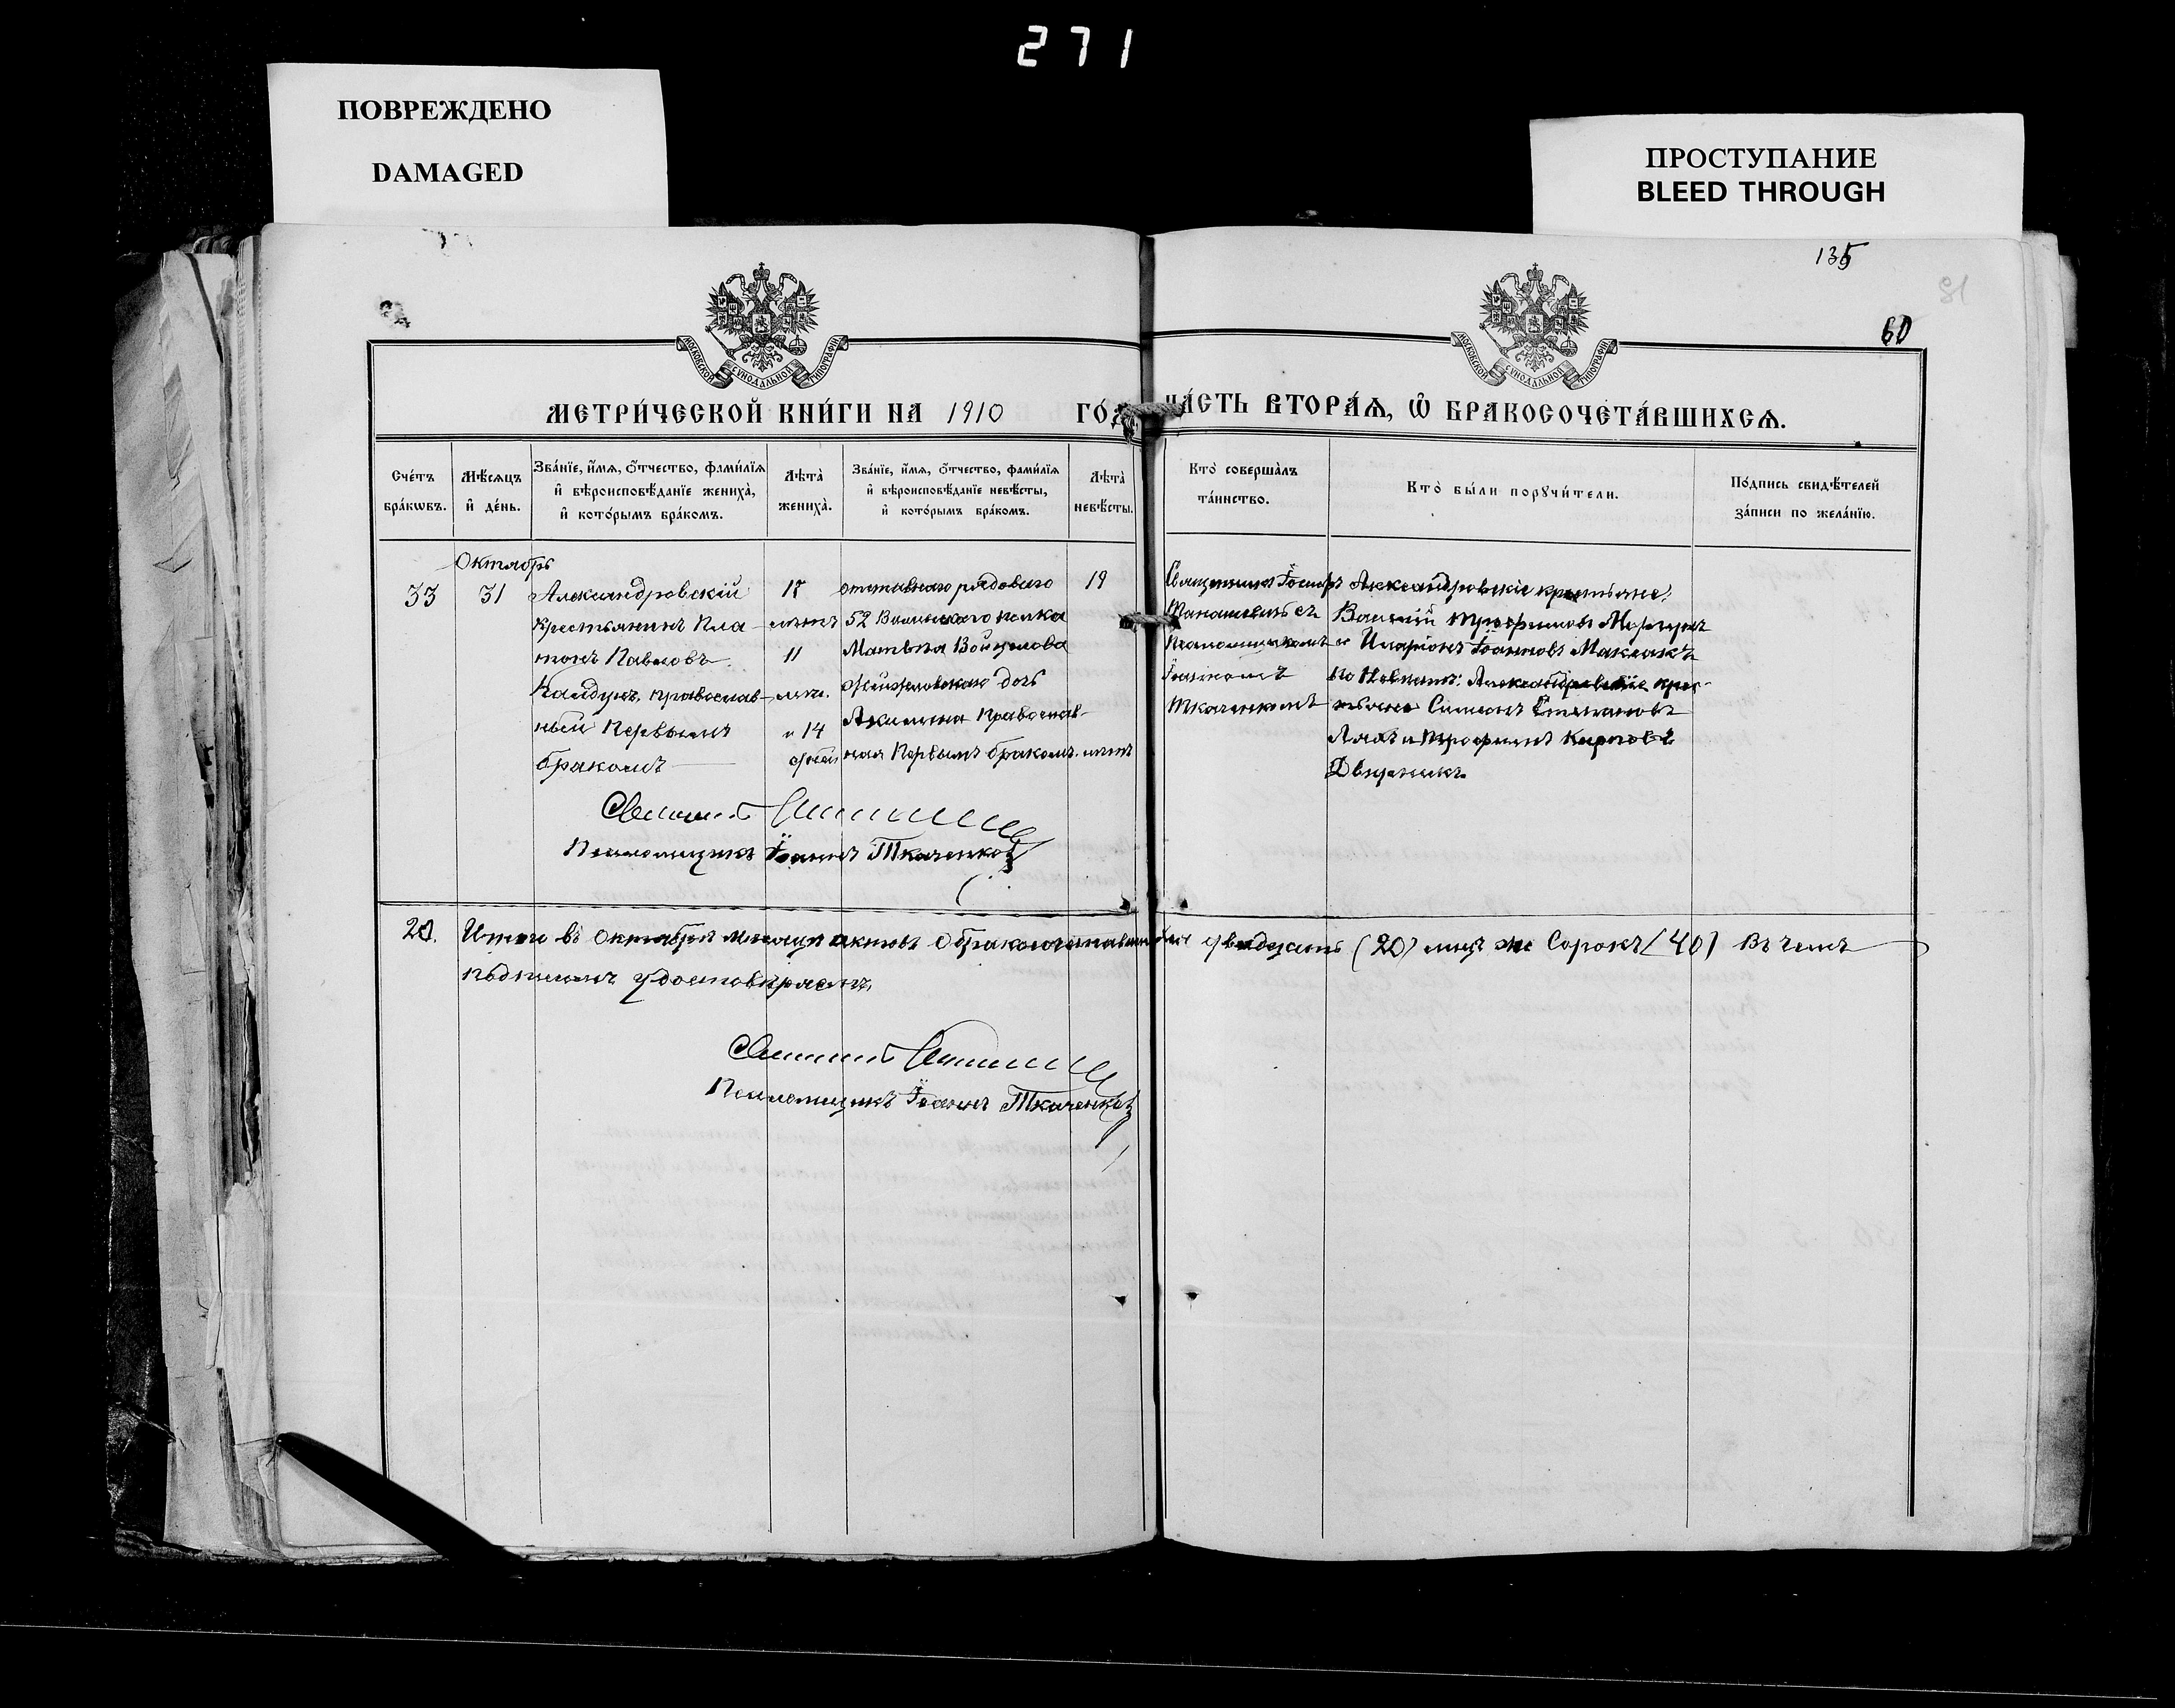 271
ПОВРЕЖДЕНО
DAMAGED
ПРОСТУПАНИЕ
BLEED THROUGH
135
91
60
МОСКОВСКОЙ СѴНОДАЛЬНОЙ ТИПОГРАФІИ
МОСКОВСКОЙ СѴНОДАЛЬНОЙ ТИПОГРАФІИ
МЕТРИ́ЧЕСКОЙ КНИ́ГИ НА 1910 ГО́Д
ЧА́СТЬ ВТОРА́Ѧ, Ѽ БРАКОСОЧЕТА́ВШИХСѦ.
Сче́тъ
бра́кѡвъ.
Мѣ́сѧцъ
и҆ де́нь.
Зва́нїе, и҆́мѧ, ѻ҆́тчество, фами́лїѧ
и҆ вѣроисповѣ́данїе жениха̀,
и҆ кото́рымъ бра́комъ.
Лѣта̀
жениха̀.
Зва́нїе, и҆́мѧ, ѻ҆́тчество, фами́лїѧ
и҆ вѣроисповѣ́данїе невѣ́сты,
и҆ кото́рымъ бра́комъ.
Лѣта̀
невѣ́сты.
Кто̀ соверша̀лъ
та́инство.
Кто̀ бы́ли порꙋчи́тели.
По́дпись свидѣ́телей
за́писи по жела́нїю.
33
Октябрь
31
Александровскій
крестьянинъ Пла-
тонъ Павловъ
Кайдунъ, православ-
ный Первымъ
бракомъ
18
лѣтъ
11
мѣс.
и 14
дней
отставнаго рядового
52 Виленскаго полка
Матвѣя Войцехова
дочь
Акилина Православ-
ная Первымъ бракомъ.
19
лѣтъ
Священникъ Іосифъ
съ
Псаломщикомъ
Іоанномъ
Ткаченкомъ
Александровскіе крестьяне:
Василій Трофимовъ
и Иларіонъ Іоанновъ Маклакъ
по Невѣстѣ: Александровскіе крес-
тьяне Симеонъ Степановъ
Ляхъ и Трофимъ Карповъ
Двурникъ
Священникъ
Псаломщикъ Іоаннъ Ткаченковъ
20.
Итого въ Октябрѣ мѣсяцѣ актовъ о бракосочетавшихся двадцать (20) лицъ же Сорокъ (40) Въ чемъ
подписомъ удостовѣряемъ.
Священникъ
Псаломщикъ Іоаннъ Ткаченковъ